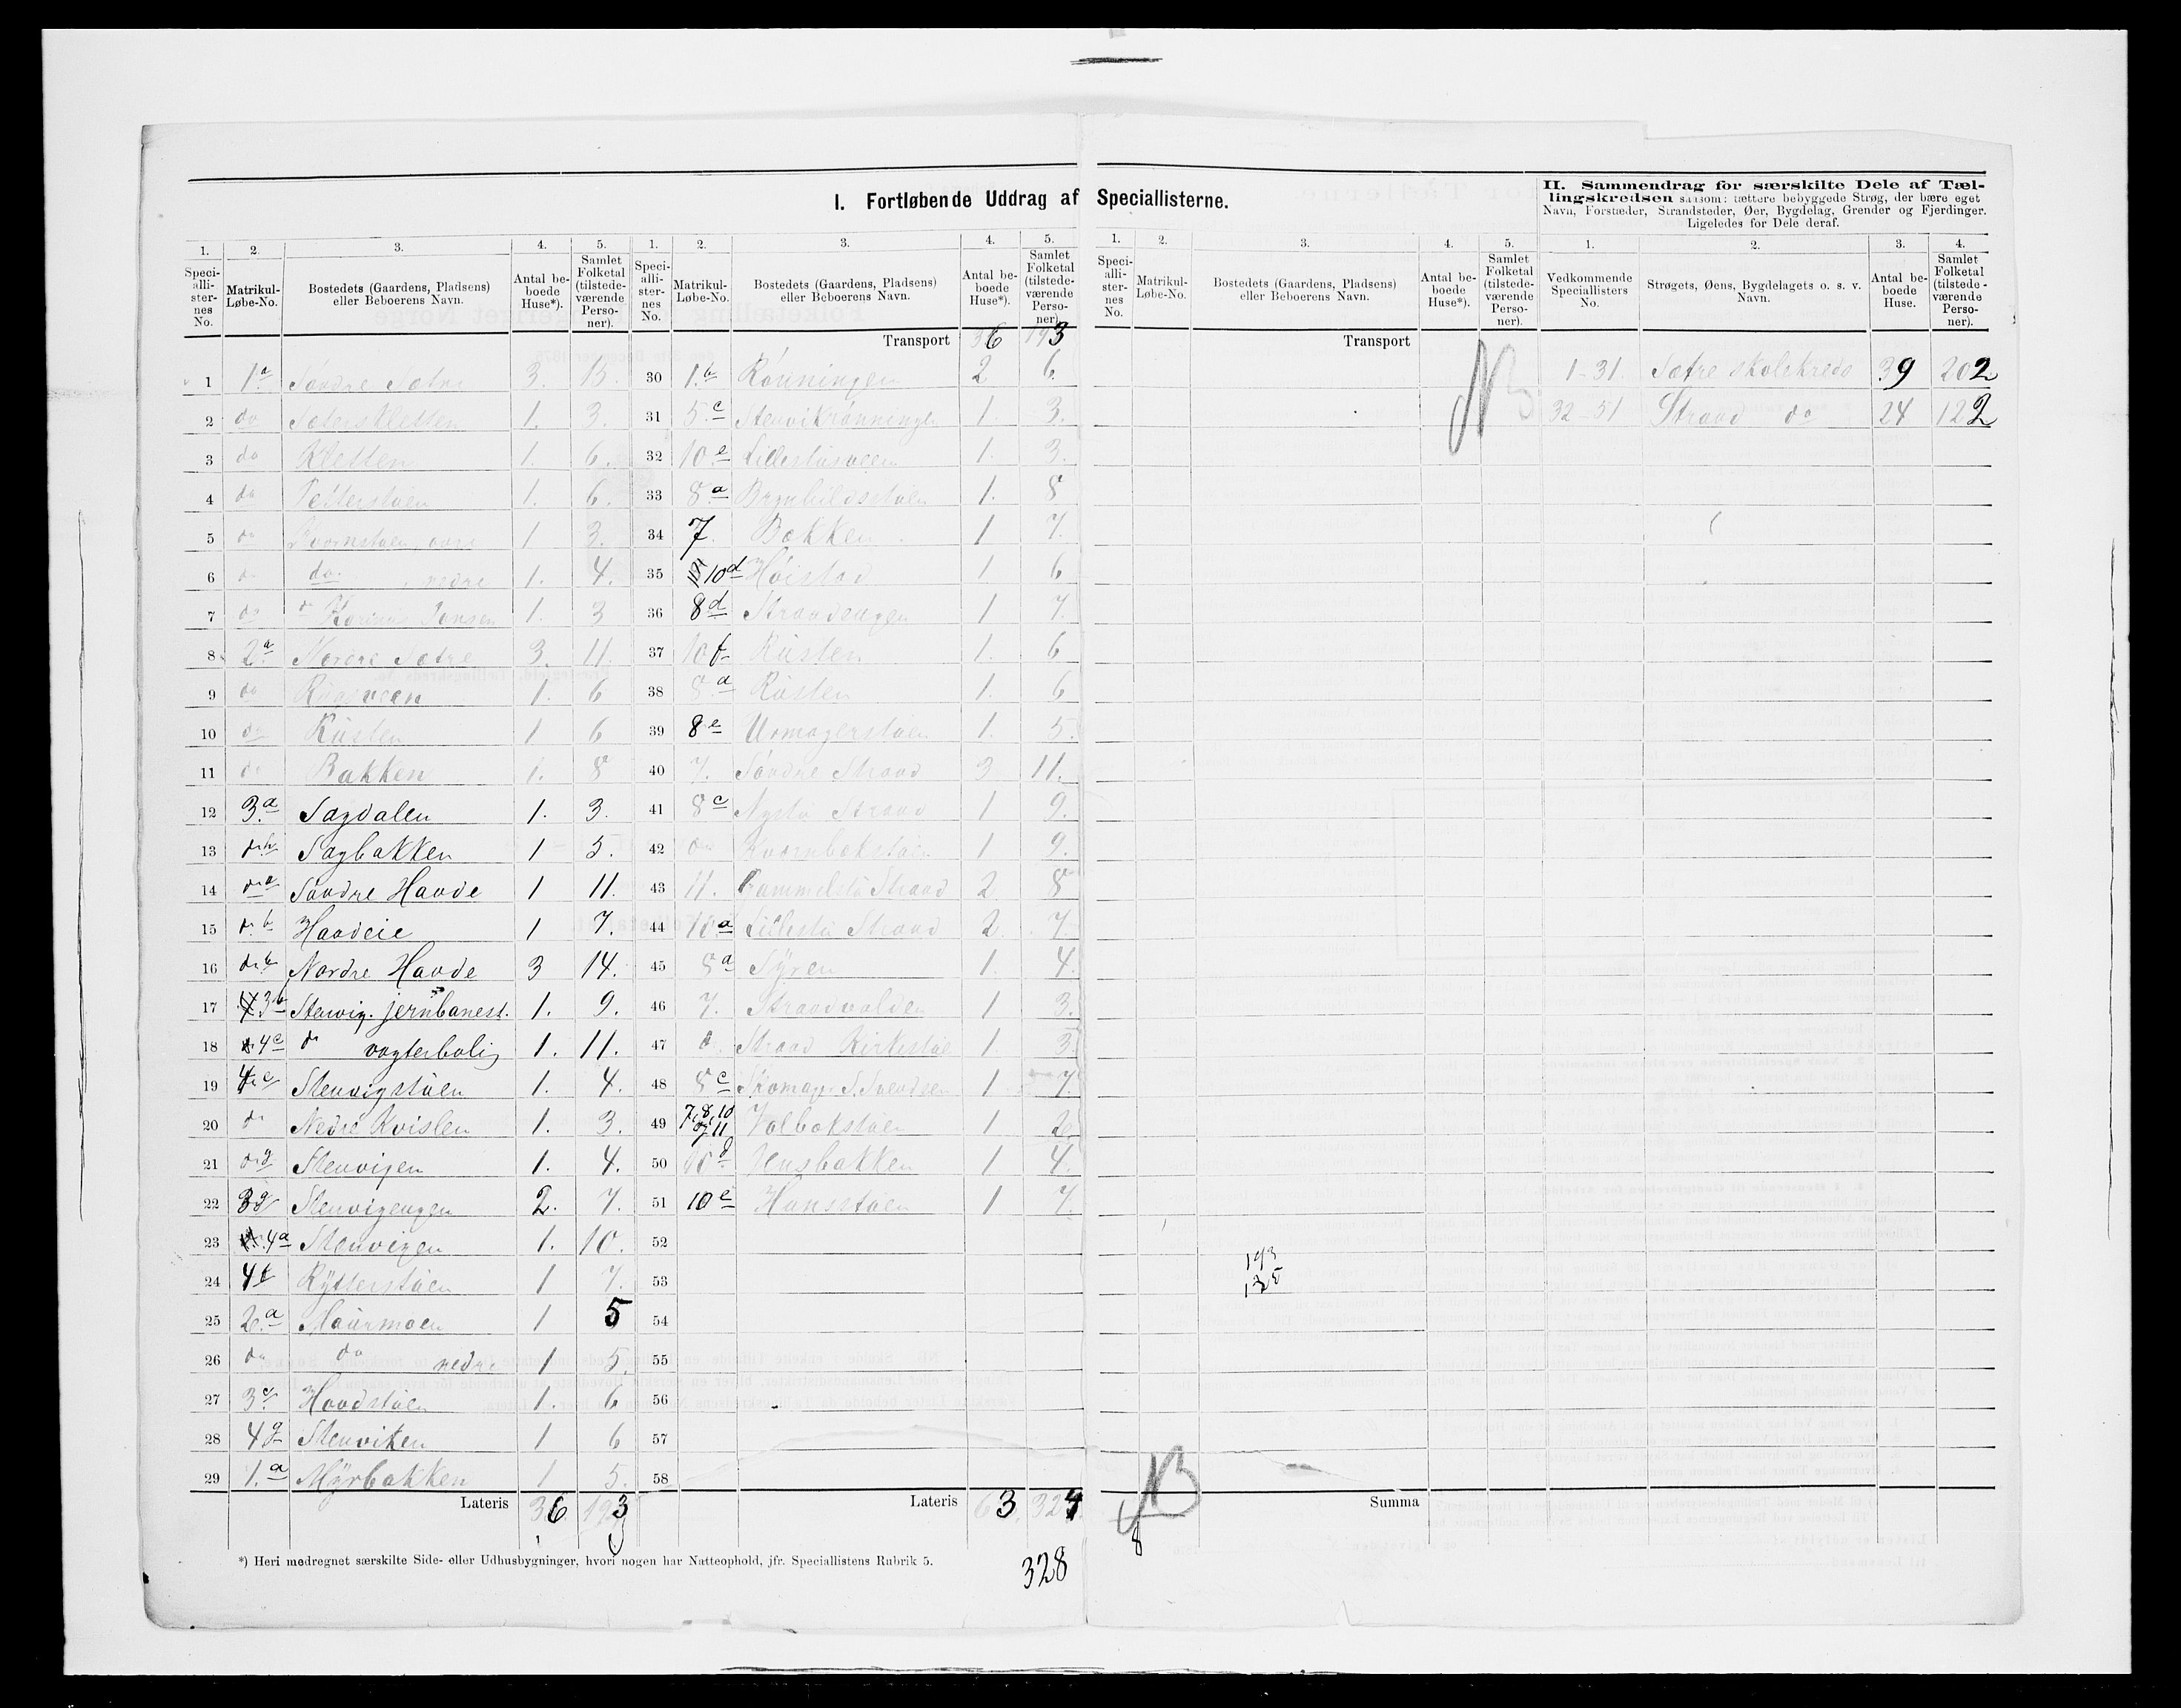 I. Fortløbende Uddrag af Speciallisterne.
II. Sammendrag for særskilte Dele af Tæl-
lingskredsen saasom: tættere bebyggede Strøg, der bære eget
Navn, Forstæder, Strandsteder, Øer, Bygdelag, Grender og Fjerdinger.
Ligeledes for Dele deraf.
1. 2. 3. 4. 5. 1. 2. 3. 4. 5. 1. 2. 3. 4. 5. 1. 2. 3. 4.
Speci-alli-ster-nes No. Matrikul-Løbe-No. Bostedets (Gaardens, Pladsens) eller Beboerens Navn. Antal be-boede Huse*). Samlet Folketal (tilstede-værende Perso-ner).
Speci-alli-ster-nes No. Matrikul-Løbe-No. Bostedets (Gaardens, Pladsens) eller Beboerens Navn. Antal be-boede Huse*). Samlet Folketal (tilstede-værende Perso-ner).
Speci-alli-ster-nes No. Matrikul-Løbe-No. Bostedets (Gaardens, Pladsens) eller Beboerens Navn. Antal be-boede Huse*). Samlet Folketal (tilstede-værende Perso-ner).
Vedkommende Speciallisters No. Strøgets, Øens, Bygdelagets o. s. v. Navn. Antal be-boede Huse. Samlet Folketal (tilstede-værende Perso-ner).
1 1a Søndre Sætre 3. 15.
2 do Sætreskletten 1. 3.
3 do Kletten 1. 6.
4 do Petterstuen 1. 6.
5 do 1 3.
6 do do. nedre 1. 4.
7 do do Jensen 1. 3
8 2a Nordre Sætre 3. 11.
9 do 1. 6
10 do Rusten 1 6
11 do Bakken 1. 8
12 3.a Sagdalen 1. 3.
13 do b Sagbakken 1 5.
14 do a Søndre Haode 1 11.
15 do b Haodeie 1 7.
16 do b Nordre Haode 3 14.
17 3b Stenvig. jernbanest. 1. 9.
18 4c do vogterbolig 1. 11.
19 4c Stenvigstuen 1. 4.
20 do Nedre Kvislen 1. 3.
21 do g Stenvigen 1. 4.
22 3g Stenvigengen 2. 7.
23 4a Stenvigen 1. 10.
24 4f Rytterstuen 1 7.
25 2.a Maurmoen 1 5
26 do do nedre 1 5.
27 3c Haodstuen 1. 6
28 4g Stenviken 1 6
29 1.a Myrbakken 1 5.
Lateris 36 193
Transport 36 193
30 1.b Rønningen 2 6.
31 5.c 1. 3.
32 10.e Lillestusveen 1. 3.
33 8.a Brynhildsstuen 1. 8
34 7. Bækken 1 7.
35 10d Høistad 1 6
36 8d Strandengen 1 7.
37 10f Rusten 1. 6
38 8.a Rusten 1. 6
39 8e Urmagerstuen 1. 5.
40 7. Søndre Strand 3 11.
41 8c Nystu Strand 1 9.
42 do Kvernbækstuen 1 9.
43 11. Gammelstu Strand 2 8
44 10a Lillestu Strand 2. 7.
45 8a Syren 1. 4.
46 7. Strandvolden 1 3.
47 do Strand Kirkestue 1. 3
48 8c Skomag. S. Svendsen 1 7.
49 7, 8, 10 og 11 Valbækstuen 1 2
50 10d Jensbakken 1 4.
51 10e Hansstuen 1 7.
52
53
54
55
56
57
58
Lateris 63 324
328
Transport
NB
193
135
NB
8
Summa
1-31. Sætre skolekreds 39 202
32-51 Strand do 24 122
*) Heri medregnet særskilte Side- eller Udhusbygninger, hvori nogen har Natteophold, jfr. Speciallistens Rubrik 5.